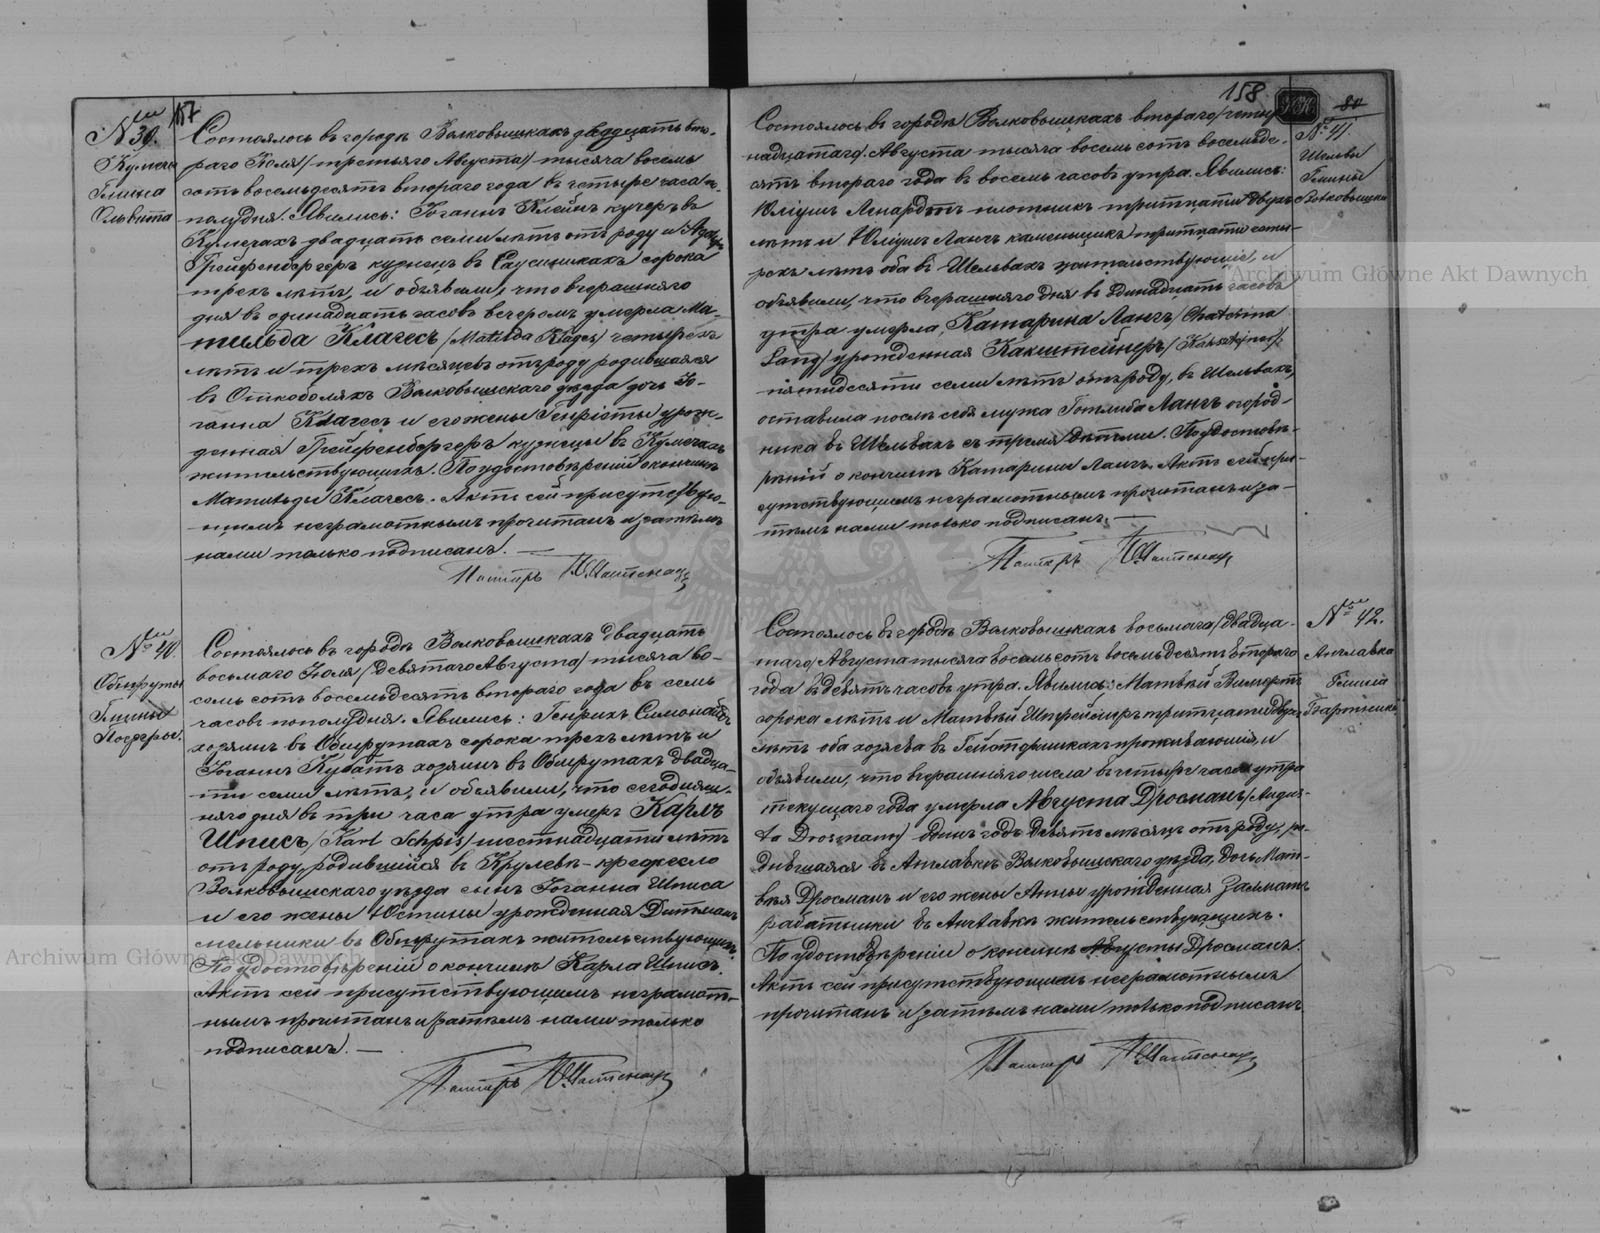 157
№ 39.
Кумечи
Гмина
Ольвита
Состоялось въ городѣ Волковышкахъ двадцать вто-
раго Іюля/третьяго Августа/ тысяча восемь
сотъ восемьдесятъ втораго года въ четыре часа по-
полудня. Явились: Іоганъ Клейнъ кучеръ въ
Кумечахъ двадцать семи лѣтъ отъ роду и
Грейфенбергеръ кузнецъ въ сорока
трехъ лѣтъ, и объявили, что вчерашняго
дня въ одинадцать часовъ вечеромъ умерла Ма-
тильда Клагесъ /Matilda Klages/ четырехъ
лѣтъ и трехъ мѣсяцевъ отъ роду родившаяся
въ Ошкоболяхъ Волковышскаго уѣзда дочь Іо-
ганна Клагесъ и его жены Генріэты урож-
денная Грейфенбергеръ кузнецы въ Кумечахъ
жительствующихъ. По удостовѣреніи о кончинѣ
Матильды Клагесъ. Актъ сей присутствую-
щимъ неграмотнымъ прочитанъ и затѣмъ
нами только подписанъ. —
Пасторъ
№ 40.
Обшруты
Гмины
Состоялось въ городѣ Волковышкахъ двадцать
восьмаго Іюля/девятаго Августа/ тысяча во-
семь сотъ восемьдесятъ втораго года въ семь
часовъ пополудня. Явились: Генрихъ
хозяинъ въ Обшрутахъ сорока трехъ лѣтъ и
Іоганъ Куватъ хозяинъ въ Обшрутахъ двадца-
ти семи лѣтъ, и объявили, что сегодняш-
няго дня въ три часа утра умеръ Карлъ
Шписъ /Karl Schpis/ шестнадцати лѣтъ
отъ роду, родившійся въ Крулевѣ-кресло
Волковышскаго уѣзда сынъ Іоганна Шписа
и его жены Юстины урожденная Дитманъ
мельники въ Обшрутахъ жительствующихъ.
По удостовѣреніи о кончинѣ Карла Шписъ.
Актъ сей присутствующимъ неграмот-
нымъ прочитанъ и затѣмъ нами только
подписанъ. —
Пасторъ
158
80
№ 41.
Шельви
Гмины
Волковышки
Состоялось въ городѣ Волковышкахъ втораго/четыр-
надцатаго/ Августа тысяча восемь сотъ восемьде-
сятъ втораго года въ восемь часовъ утра. Явились:
Юліушъ Ленардтъ плотникъ тритцати двухъ
лѣтъ и Юліушъ Лангъ каменьщикъ тритцати четы-
рехъ лѣтъ оба въ Шельвахъ жительствующіе, и
объявили, что вчерашняго дня въ одинадцать часовъ
утра умерла Катарина Лангъ /Chatarina
Lang/ урожденная Какштейнеръ
пятидесяти семи лѣтъ отъ роду, въ Шельвахъ,
оставила послѣ себя мужа Готлиба Лангъ огород-
ника въ Шельвахъ съ тремя дѣтьми. По удостовѣ-
реніи о кончинѣ Катарины Лангъ. Актъ сей при-
сутствующимъ неграмотнымъ прочитанъ и за-
тѣмъ нами только подписанъ. —
Пасторъ
№ 42.
Анчлавка
Гмина
Состоялось въ городѣ Волковышкахъ восьмаго/двадца-
таго/ Августа тысяча восемь сотъ восемьдесятъ втораго
года въ девять часовъ утра. Явились: Матвѣй Вимертъ
сорока лѣтъ и Матвѣй тритцати двухъ
лѣтъ оба хозяева въ проживающія, и
объявили, что вчерашняго числа въ четыре часа утра
текущаго года умерла Августа Дросманъ /Augus-
ta Drosmann/ одинъ годъ девять мѣсяцъ отъ роду, ро-
дившаяся въ Анчлавкѣ Волковышскаго уѣзда, дочь Мат-
вѣя Дросманъ и его жены Анны урожденная Залманъ
работники въ Анчлавкѣ жительствующихъ.
По удостовѣреніи о кончинѣ Августы Дросманъ.
Актъ сей присутствующимъ неграмотнымъ
прочитанъ и затѣмъ нами только подписанъ
Пасторъ
Archiwum Główne Akt Dawnych
Archiwum Główne Akt Dawnych